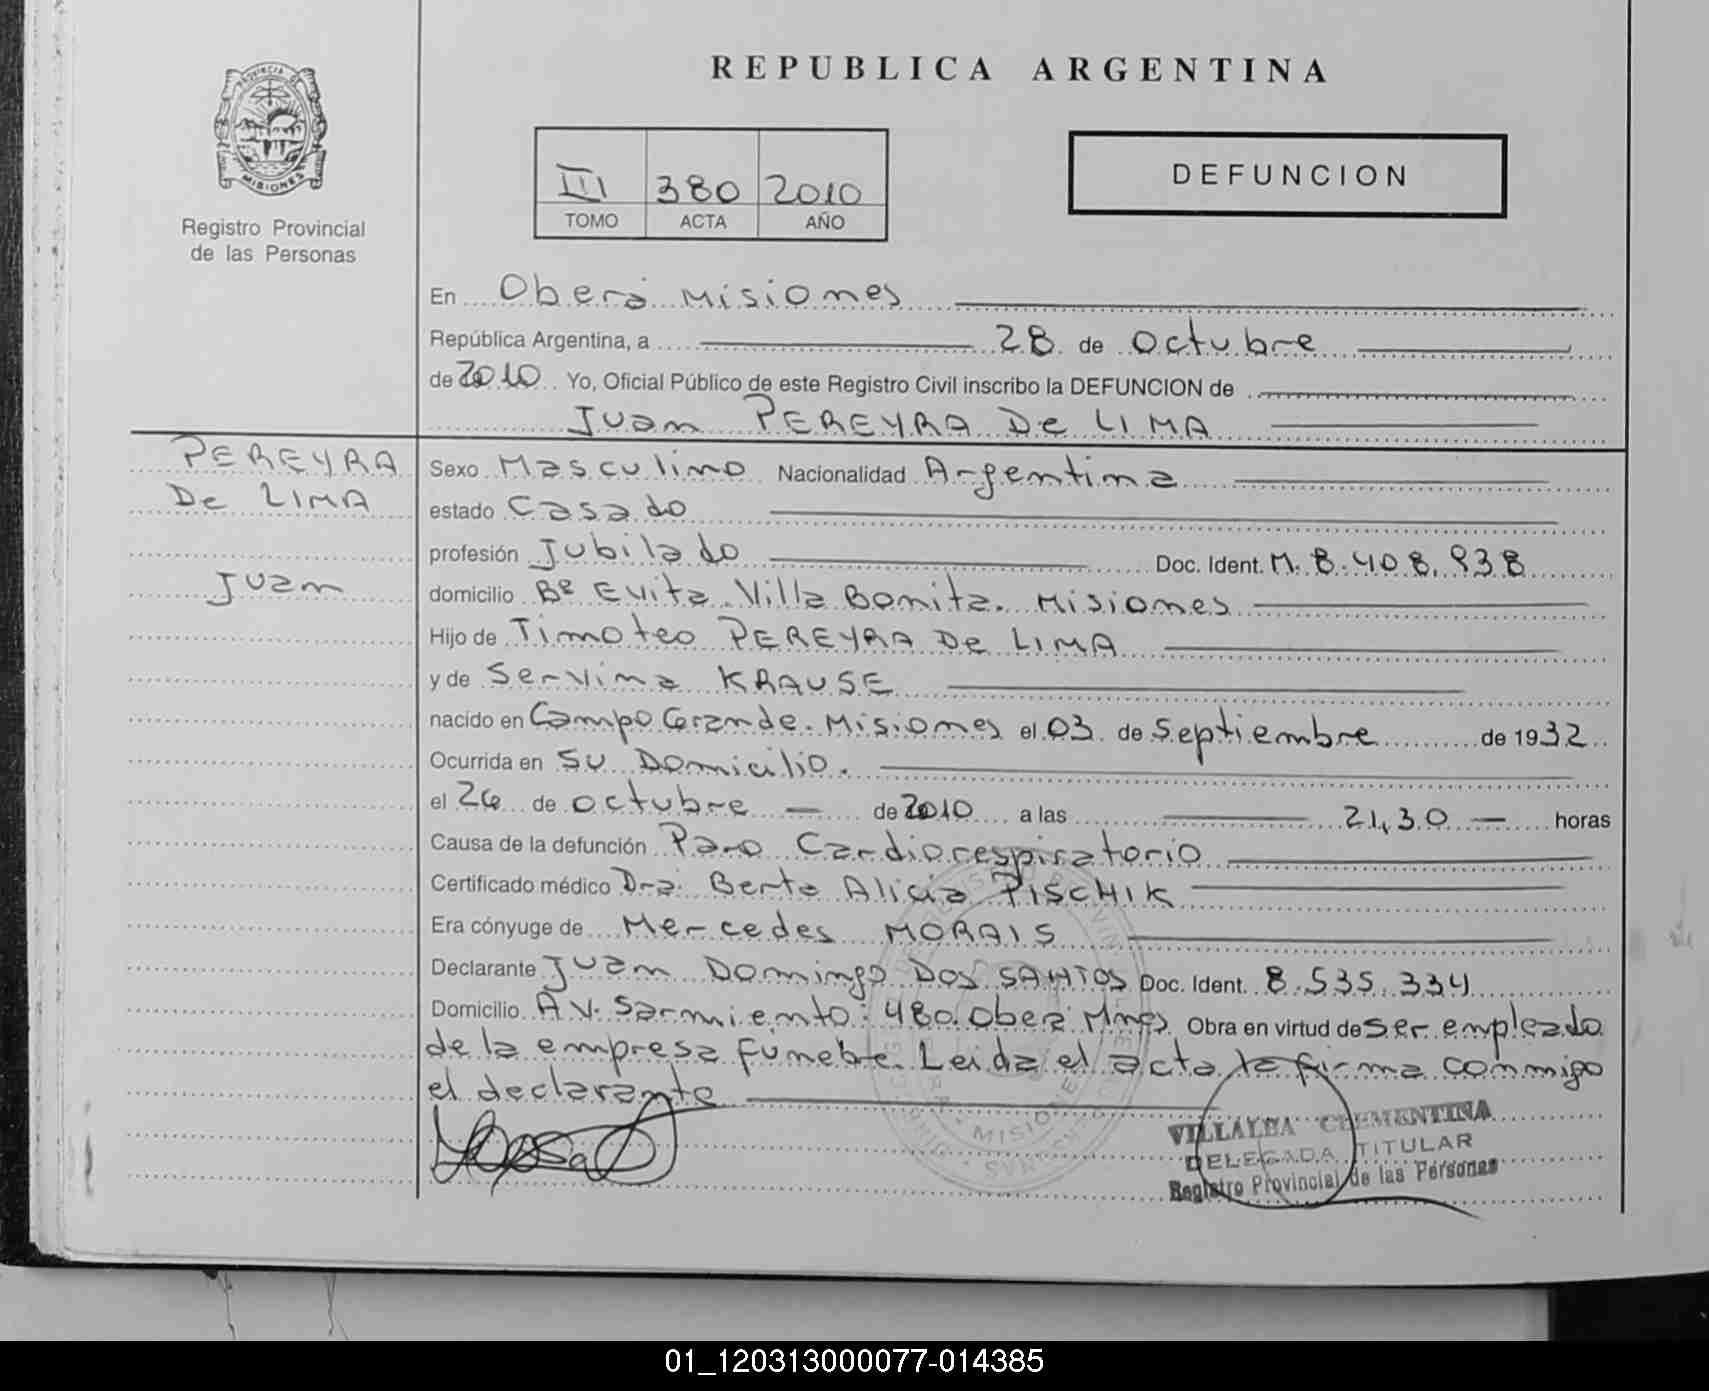 REPUBLICA ARGENTINA
PROVINCIA DE
MISIONES
Registro Provincial
de las Personas
III 380 2010
TOMO ACTA AÑO
DEFUNCION
En Oberá Misiones
República Argentina, a 28 de octubre
de 2010 Yo, Oficial Público de este Registro Civil inscribo la DEFUNCION de
Juan PEREYRA De LIMA
PEREYRA
De LIMA
Juan
Sexo Masculino Nacionalidad Argentina
estado Casado
profesión Jubilado Doc. Ident. M. 8.408.938
domicilio Bº Evita. Villa Bonita. Misiones
Hijo de Timoteo PEREYRA De LIMA
y de Servina KRAUSE
nacido en Campo Grande. Misiones el 03 de Septiembre de 1932
Ocurrida en su Domicilio.
el 26 de octubre de 2010 a las 21,30 horas
Causa de la defunción Paro Cardiorespiratorio
Certificado médico Dra. Berta Alicia PISCHIK
Era cónyuge de Mercedes MORAIS
Declarante Juan Domingo DOS SANTOS Doc. Ident. 8.535.334
Domicilio AV. Sarmiento 480. Obera Mnes Obra en virtud de ser empleado
de la empresa funebre. Leida el acta la firma conmigo
el declarante
MISIONES
VILLALBA CLEMENTINA
DELEGADA TITULAR
Registro Provincial de las Personas
01_120313000077-014385